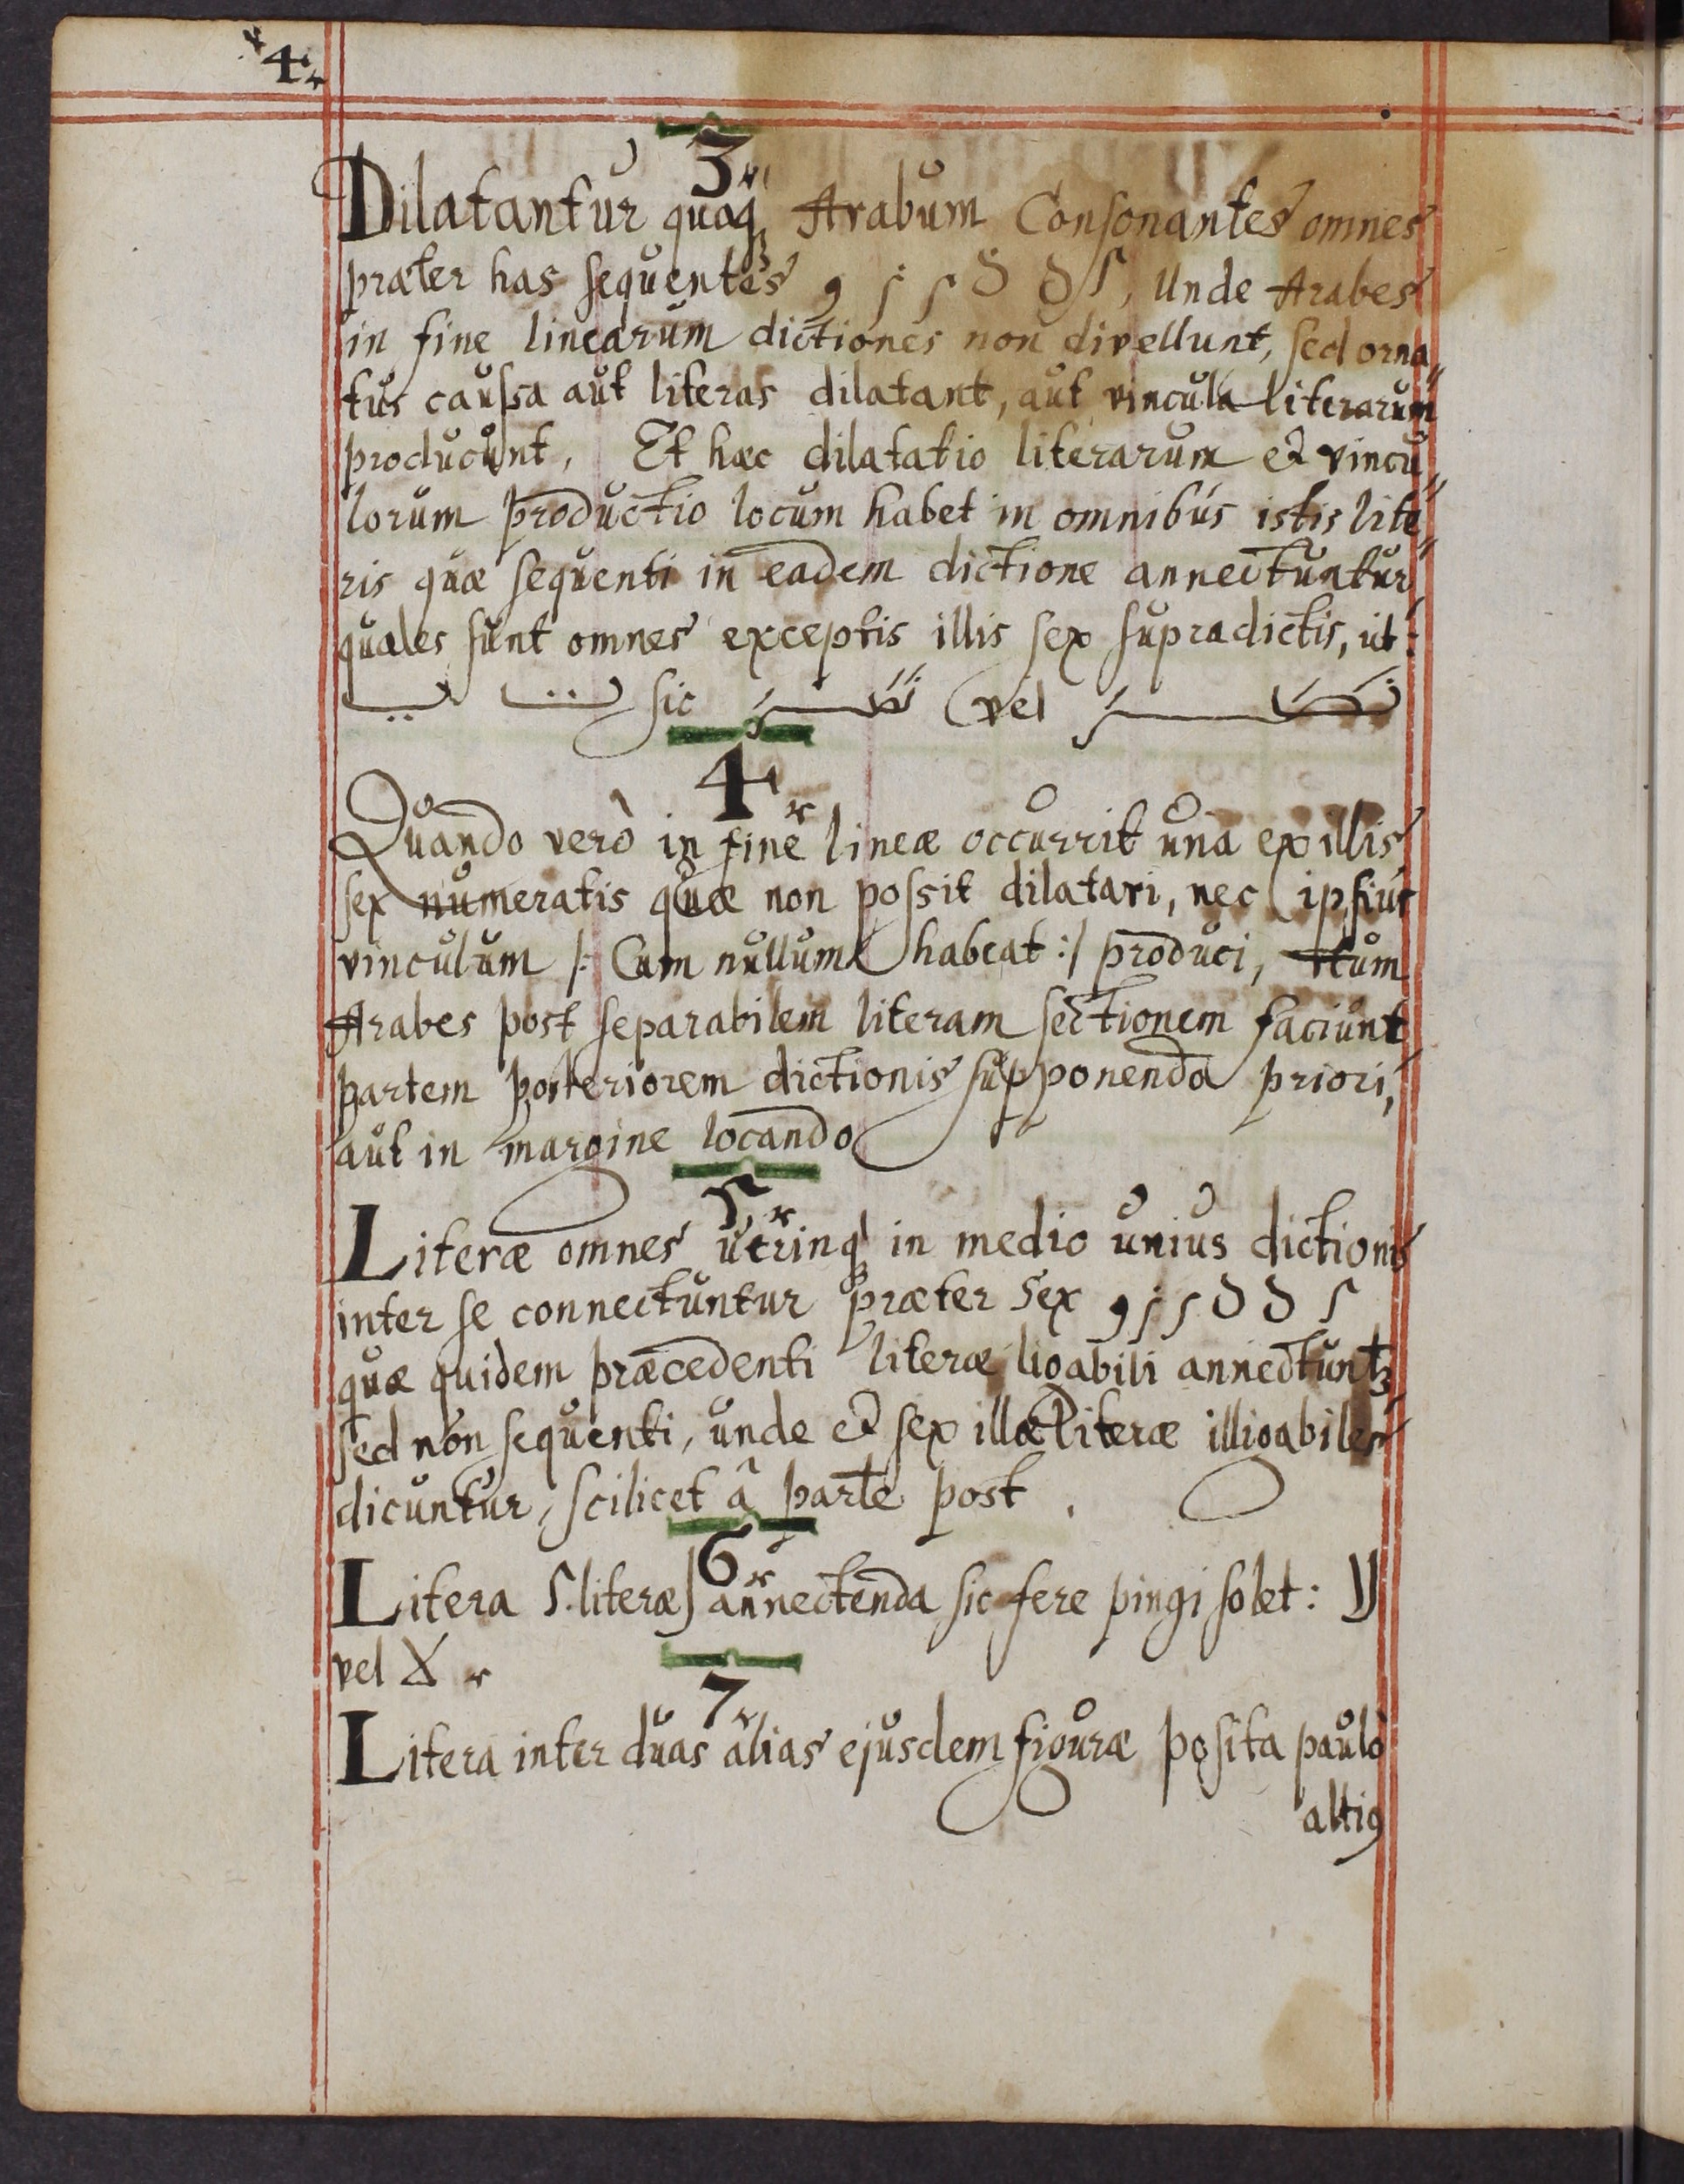 4
3
Dilatantur quaq₃ Arabum Consonantes omnes
præter has sequentes و ز ر ذ د ا, Unde Arabes
in fine linearum dictiones non divellunt, sed orna„
tus caussa aut literas dilatant, aut vincula literarum
producunt, Et hæc dilatatio literarum et vincu„
lorum productio locum habet in omnibus istis lite„
ris quæ sequenti in eadem dictione annectuntur,
quales sunt omnes exceptis illis sex supradictis, ut:
sic vel
4
Quando verò in fine lineæ occurrit una ex illis
sex numeratis quæ non possit dilatari, nec ipsius
vinculum /: Cum nullum habeat :/ produci, tum
Arabes post separabilem literam sectionem faciunt
partem posteriorem dictionis supponenda priori,
aut in margine locando
5
Literæ omnes utrinq₃ in medio unius dictionis
inter se connectuntur præter sex و ز ر ذ د ا
quæ quidem præcedenti literæ ligabili annectunt₃
sed non sequenti, unde et sex illæ literæ illigabiles
dicuntur, scilicet â parte post.
6
Litera ا literæ ل annectenda sic fere pingi solet: لا
vel لا
7
Litera inter duas alias ejusdem figuræ posita paulò
altiꝯ